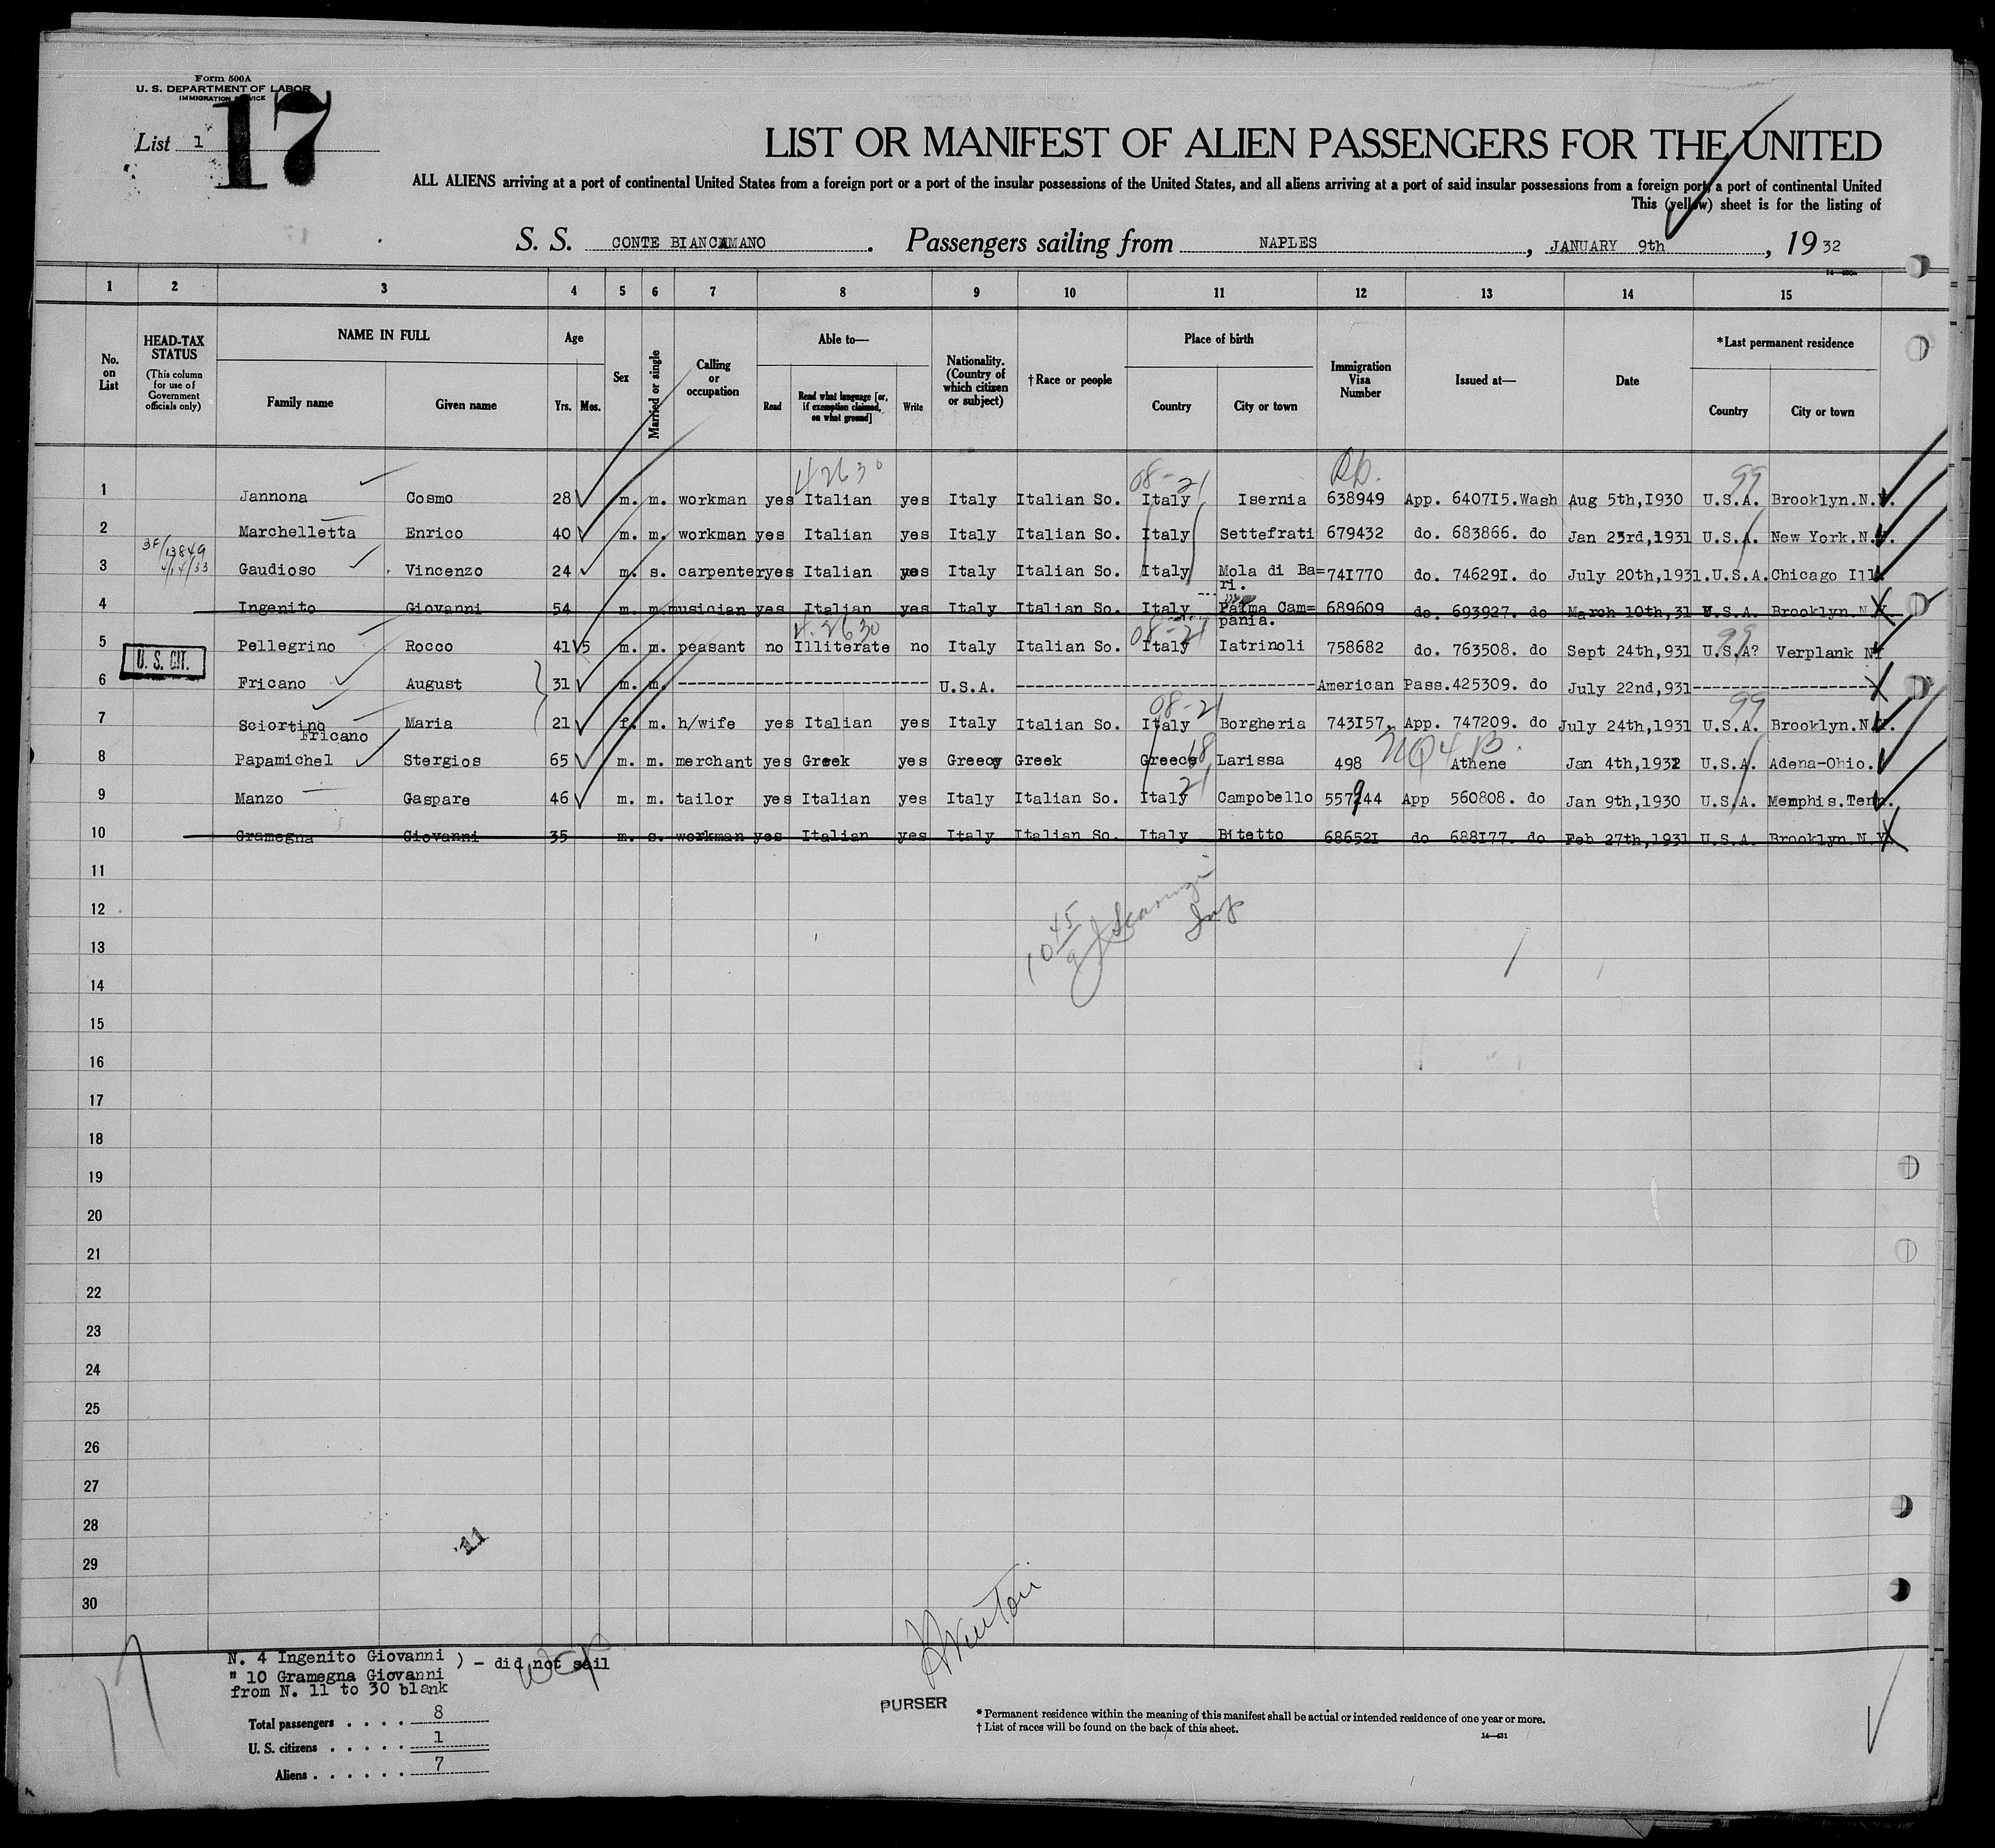 Form 500A
U. S. DEPARTMENT OF LABOR
IMMIGRATION SERVICE
17
List 1
LIST OR MANIFEST OF ALIEN PASSENGERS FOR THE UNITED
ALL ALIENS arriving at a port of continental United States from a foreign port or a port of the insular possessions of the United States, and all aliens arriving at a port of said insular possessions from a foreign port, a port of continental United
This (yellow) sheet is for the listing of
S. S. CONTE BIANCAMANO. Passengers sailing from NAPLES, JANUARY 9th, 1932
1 2 3 4 5 6 7 8 9 10 11 12 13 14 15
No. on List
HEAD-TAX STATUS
(This column for use of Government officials only)
NAME IN FULL
Family name Given name
Age
Yrs. Mos.
Sex
Married or single
Calling or occupation
Able to—
Read
Read what language [or, if exemption claimed, on what ground]
Write
Nationality. (Country of which citizen or subject)
†Race or people
Place of birth
Country City or town
Immigration Visa Number
Issued at—
Date
*Last permanent residence
Country City or town
42630 08-21 99
1 Jannona Cosmo 28 m. m. workman yes Italian yes Italy Italian So. Italy Isernia 638949 App. 640715.Wash Aug 5th,1930 U.S.A. Brooklyn.N.Y.
2 Marchelletta Enrico 40 m. m. workman yes Italian yes Italy Italian So. Italy Settefrati 679432 do. 683866. do Jan 23rd,1931 U.S.A. New York.N.Y.
3F/13849
4/14/33
3 Gaudioso Vincenzo 24 m. s. carpenter yes Italian yes Italy Italian So. Italy Mola di Ba=ri. 741770 do. 746291. do July 20th,1931. U.S.A. Chicago Ill
4 Ingenito Giovanni 54 m. m. musician yes Italian yes Italy Italian So. Italy Palma Cam=pania. 689609 do. 693927. do March 10th,31 U.S.A. Brooklyn N.Y.
4.2630 08-21 99
5 Pellegrino Rocco 41 5 m. m. peasant no Illiterate no Italy Italian So. Italy Iatrinoli 758682 do. 763508. do Sept 24th,931 U.S.A? Verplank NY
U. S. CIT.
6 Fricano August 31 m. m. U.S.A. American Pass.425309. do July 22nd,931
08-21 99
7 Sciortino Fricano Maria 21 f. m. h/wife yes Italian yes Italy Italian So. Italy Borgheria 743157. App. 747209. do July 24th,1931 U.S.A. Brooklyn.N.Y.
NQ4B.
8 Papamichel Stergios 65 m. m. merchant yes Greek yes Greecy Greek Greece 18 Larissa 498 Athene Jan 4th,1932 U.S.A. Adena-Ohio.
21
9 Manzo Gaspare 46 m. m. tailor yes Italian yes Italy Italian So. Italy Campobello 557944 App 560808. do Jan 9th,1930 U.S.A. Memphis.Tenn.
10 Gramegna Giovanni 35 m. s. workman yes Italian yes Italy Italian So. Italy Bitetto 686521 do 688177. do Feb 27th,1931 U.S.A. Brooklyn.N.Y.
11
12
13
14
15
16
17
18
19
20
21
22
23
24
25
26
27
28
29
30
10 45
11
17
N. 4 Ingenito Giovanni ) - did not sail
" 10 Gramegna Giovanni
from N. 11 to 30 blank
Total passengers . . . . 8
U. S. citizens . . . . . 1
Aliens . . . . . . 7
PURSER
* Permanent residence within the meaning of this manifest shall be actual or intended residence of one year or more.
† List of races will be found on the back of this sheet.
14—431